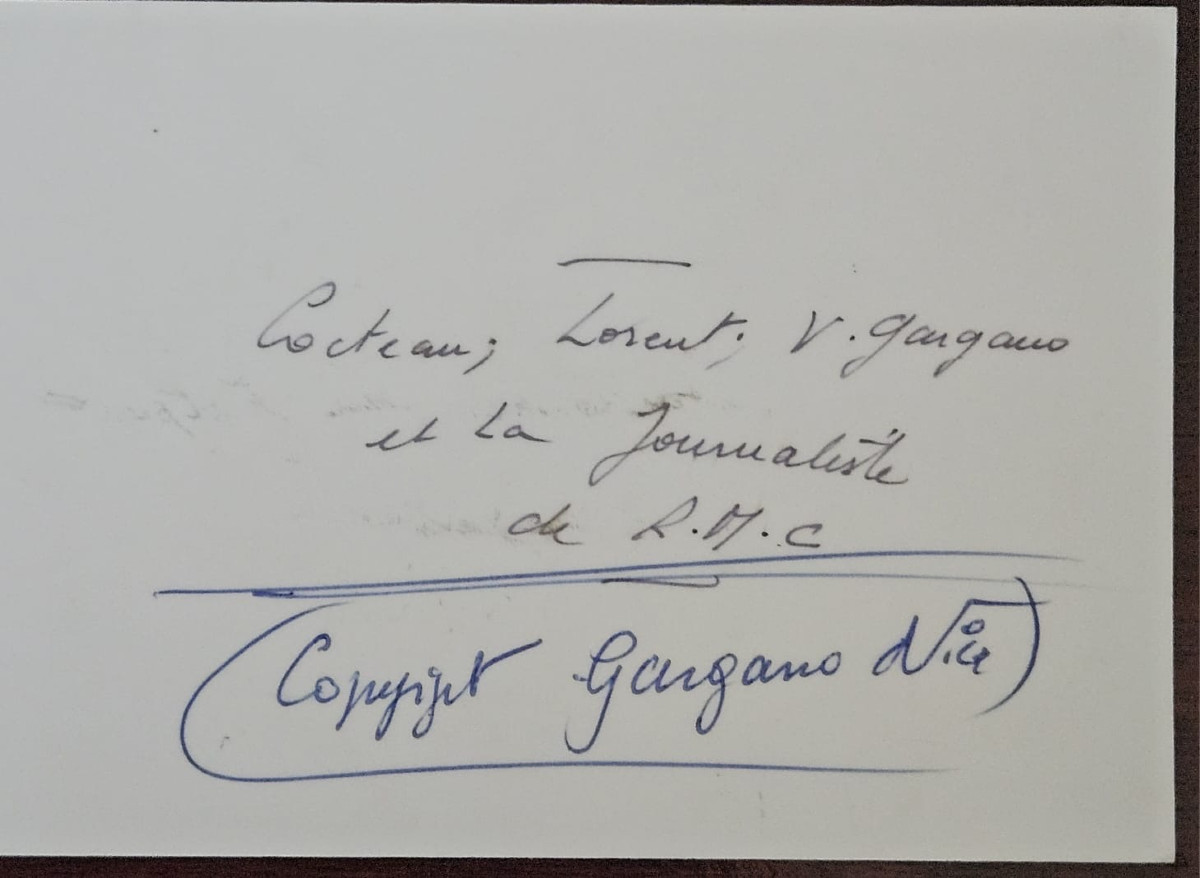 Cocteau; Lorent; V. Gargano
et La Journaliste
de R.M.C
Copyright Gargano Nice